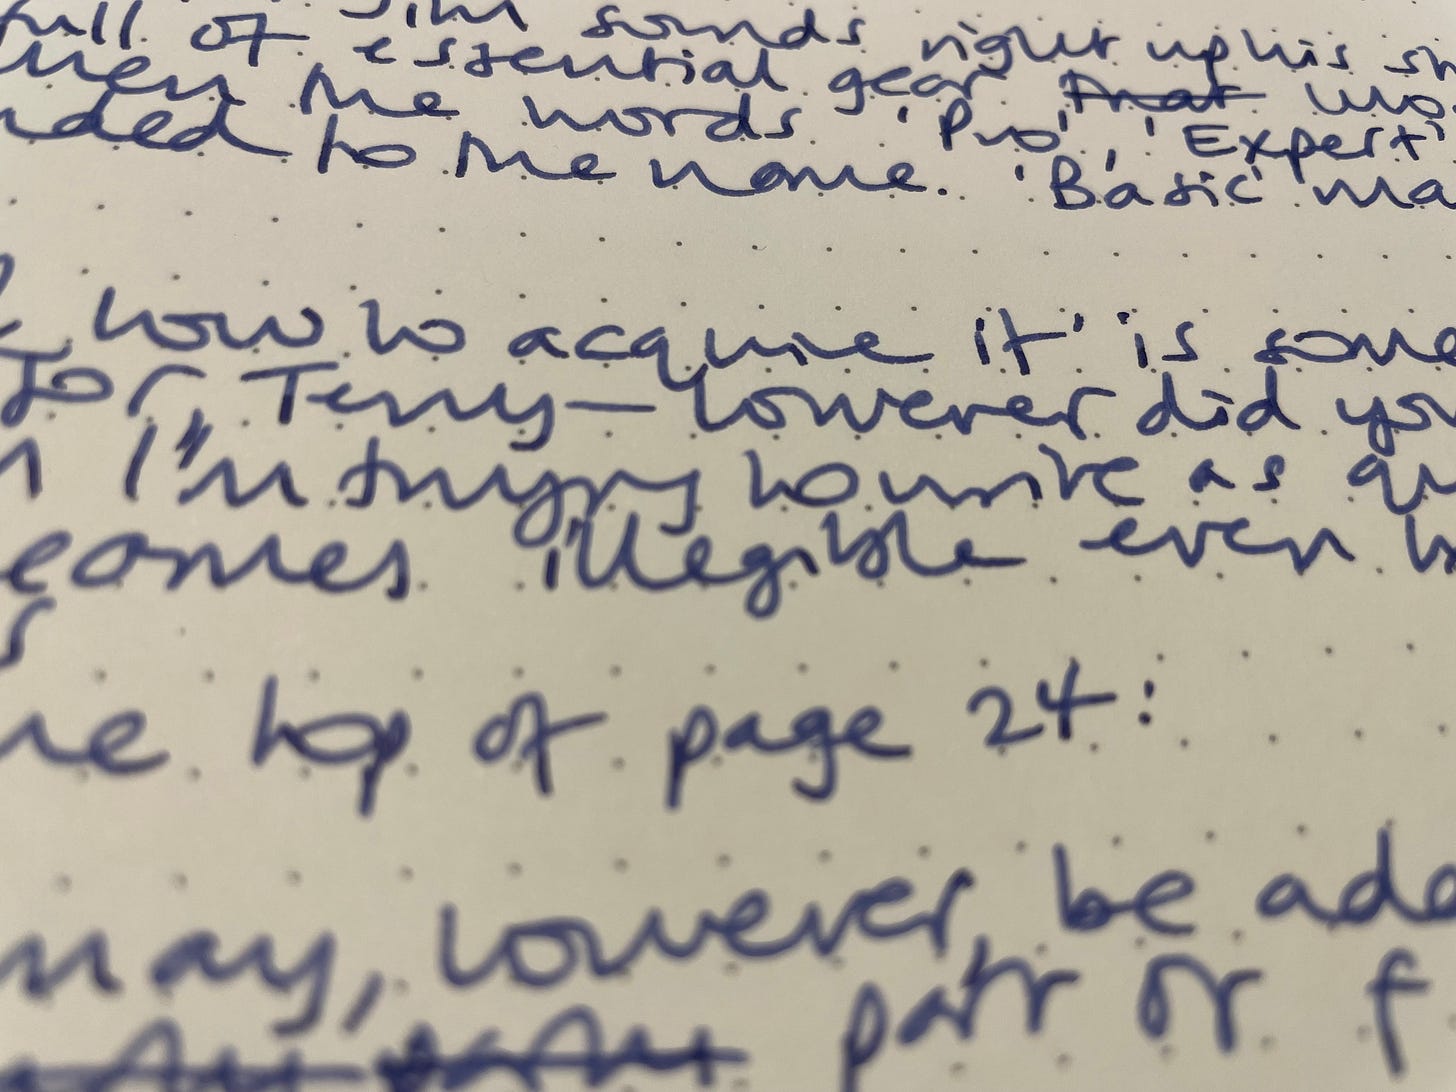 full of Jim sounds right up his sh
when the essential gear that wo
nded to the words 'Pro', 'Expert'
to the name. 'Basic' ma
how to acquire it' is some
for Terry — however did you
I'm trying to write as qu
ecomes illegible even h
he top of page 24:
may, however, be add
pair or f